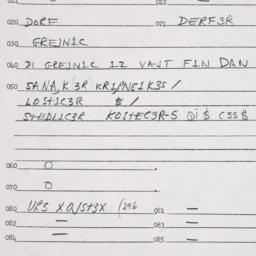 020 DORF 021 DERF3R
030 GREJN1C
040 GREJN1C 12 VAJT F1N DAN
050 SANA, K3R KR1PNC1K3S /
LOST1C3R $ /
KOSTEC3R-S Qi $ C3S $
060 O .
070 O .
080 UR3 (296 081 —
082 — 083 —
084 — 085 —